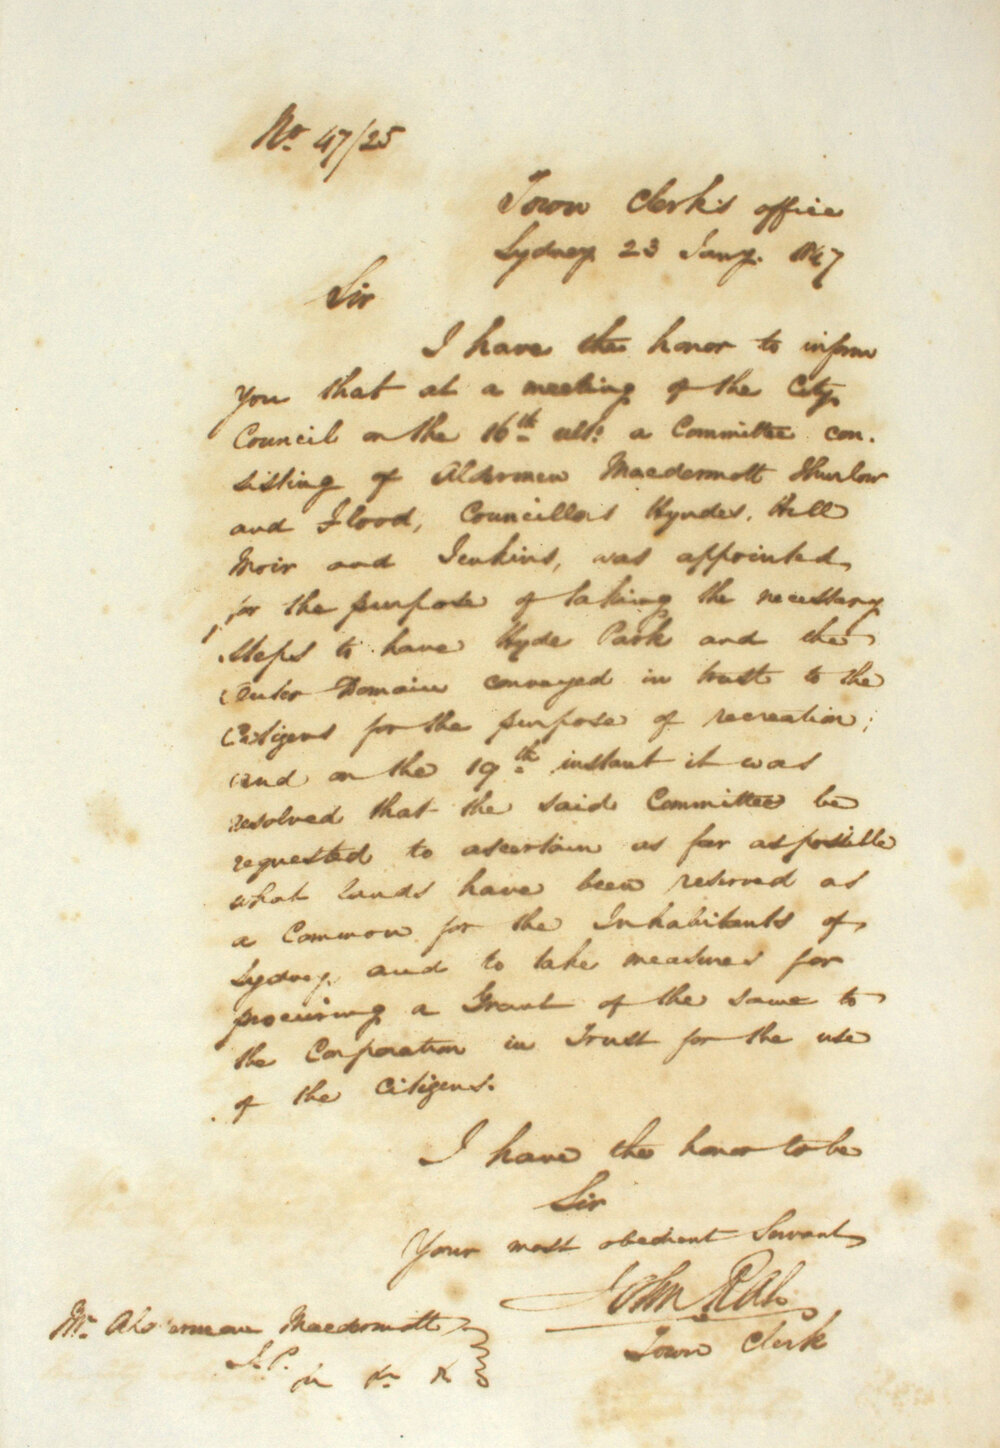 No. 47/25
Town Clerk's office
Sydney 23 Jany. 1847
Sir
I have the honor to inform
you that at a meeting of the City
Council on the 16th ult: a Committee con-
sisting of Aldermen Macdermott Thurlow
and Flood, Councillors Hyndes, Hill
Moir and Jenkins, was appointed
for the purpose of taking the necessary
steps to have Hyde Park and the
Outer Domain conveyed in trust to the
Citizens for the purpose of recreation;
and on the 19th instant it was
resolved that the said Committee be
requested to ascertain as far as possible
what lands have been reserved as
a Common for the Inhabitants of
Sydney, and to take measures for
procuring a Grant of the same to
the Corporation in Trust for the use
of the Citizens.
I have the honor to be
Sir
Your most obedient Servant
John Rae
Town Clerk
Mr. Alderman Macdermott
J.P.